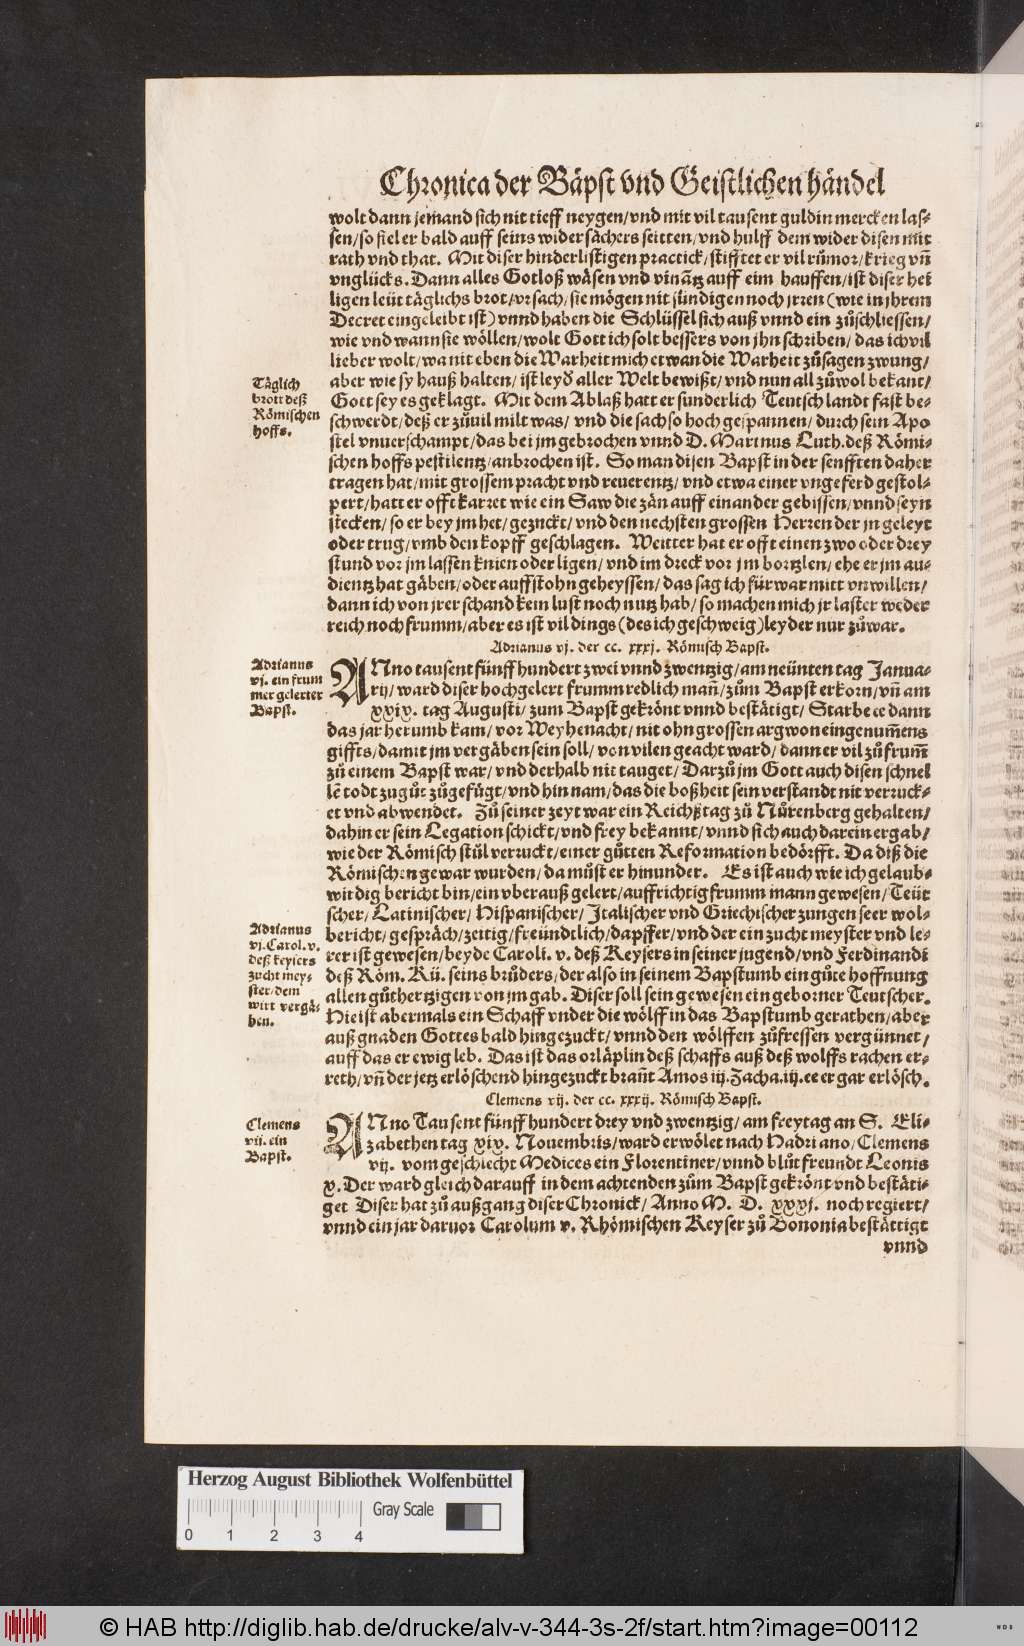 Chronica der Bäpst vnd Geistlichen händel
wolt dann jemand sich nit tieff neygen/vnd mit vil tausent guldin mercken las-
sen/so fiel er bald auff seins widersächers seitten/vnd hulff dem wider disen mit
rath vnd that. Mit diser hinderlistigen practick/stifftet er vil růmor/krieg vn̄
vnglücks. Dann alles Gotloß wäsen vnd vinātz auff eim hauffen/ist diser hei
ligen leüt täglichs brot/vrsach/sie mögen nit sündigen noch jrren (wie in jhrem
Decret eingeleibt ist) vnnd haben die Schlüssel sich auß vnnd ein zůschliessen/
wie vnd wann sie wöllen/wolt Gott ich solt bessers von jhn schriben/das ich vil
lieber wolt/wa nit eben die Warheit mich etwan die Warheit zůsagen zwung/
aber wie sy hauß halten/ist leyd aller Welt bewißt/vnd nun all zůwol bekant/
Täglich
brott deß
Römischen
hoffs.
Gott sey es geklagt. Mit dem Ablaß hatt er sunderlich Teutschlandt fast be-
schwerdt/deß er zůuil milt was/vnd die sach so hoch gespannen/durch sein Apo
stel vnuerschampt/das bei jm gebrochen vnnd D. Martinus Luth. deß Römi-
schen hoffs pestilentz/anbrochen ist. So man disen Bapst in der senfften daher
tragen hat/mit grossem pracht vnd reuerentz/vnd etwa einer vngeferd gestol-
pert/hatt er offt karret wie ein Saw die zän auff einander gebissen/vnnd seyn
stecken/so er bey jm het/gezuckt/vnd den nechsten grossen Herren der jn geleyt
oder trug/vmb den kopff geschlagen. Weitter hat er offt einen zwo oder drey
stund vor jm lassen knien oder ligen/vnd im dreck vor jm bortzlen/ehe er jm au-
dientz hat gäben/oder auffstohn geheyssen/das sag ich fürwar mitt vnwillen/
dann ich von jrer schand kein lust noch nutz hab/so machen mich jr laster weder
reich noch frumm/aber es ist vil dings (des ich geschweig) leyder nur zůwar.
Adrianus vj. der cc. xxxj. Römisch Bapst.
Adrianus
vj. ein frum
mer gelerter
Bapst.
ANno tausent fünffhundert zwei vnnd zwentzig/am neünten tag Janua-
rij/ward diser hochgelert frumm redlich man̄/zům Bapst erkorn/vn̄ am
xxix. tag Augusti/zum Bapst gekrönt vnnd bestätigt/Starbe ee dann
das jar herumb kam/vor Weyhenacht/nit ohn grossen argwon eingenum̄ens
giffts/damit jm vergäben sein soll/von vilen geacht ward/dann er vil zů frum̄
zů einem Bapst war/vnd derhalb nit tauget/Darzů jm Gott auch disen schnel
lē todt zugůt zůgefůgt/vnd hin nam/das die boßheit sein verstandt nit verruck-
et vnd abwendet. Zů seiner zeyt war ein Reichßtag zů Nůrenberg gehalten/
dahin er sein Legation schickt/vnd frey bekannt/vnnd sich auch darein ergab/
wie der Römisch stůl verruckt/einer gůtten Reformation bedörfft. Da diß die
Römischen gewar wurden/da můst er hinunder. Es ist auch wie ich gelaub-
wirdig bericht bin/ein vberauß gelert/auffrichtig frumm mann gewesen/Teüt
scher/Latinischer/Hispanischer/Italischer vnd Griechischer zungen seer wol-
Adrianus
vj. Carol. v.
deß keysers
zucht mey-
ster/dem
wirt vergä-
ben.
bericht/gespräch/zeitig/freündtlich/dapffer/vnd der ein zucht meyster vnd le-
rer ist gewesen/beyde Caroli. v. deß Keysers in seiner jugend/vnd Ferdinandi
deß Röm. Kü. seins brůders/der also in seinem Bapstumb ein gůte hoffnung
allen gůthertzigen von jm gab. Diser soll sein gewesen ein geborner Teutscher.
Hie ist abermals ein Schaff vnder die wölff in das Bapstumb gerathen/aber
auß gnaden Gottes bald hingezuckt/vnnd den wölffen zůfressen vergünnet/
auff das er ewig leb. Das ist das orläplin deß schaffs auß deß wolffs rachen er-
reth/vn̄ der jetz erlöschend hingezuckt bran̄t Amos iij. Zacha. iij. ee er gar erlösch.
Clemens vij. der cc. xxxij. Römisch Bapst.
Clemens
vij. ein
Bapst.
ANno Tausent fünffhundert drey vnd zwentzig/am freytag an S. Eli-
zabethen tag xix. Nouembris/ward erwölet nach Hadriano/Clemens
vij. vom geschlecht Medices ein Florentiner/vnnd blůtfreundt Leonis
x. Der ward gleich darauff in dem achtenden zům Bapst gekrönt vnd bestäti-
get Diser hat zů außgang diser Chronick/Anno M. D. xxxj. noch regiert/
vnnd ein jar daruor Carolum v. Rhömischen Keyser zů Bononia bestättigt
vnnd
Herzog August Bibliothek Wolfenbüttel
Gray Scale
0 1 2 3 4
© HAB http://diglib.hab.de/drucke/alv-v-344-3s-2f/start.htm?image=00112